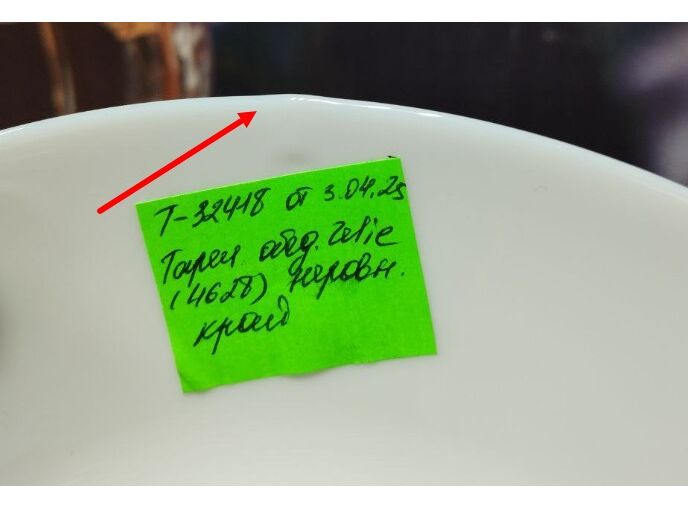 Т-32418 от 3.04.25
Тарел. обед. Zelie
(4628) неровн.
край